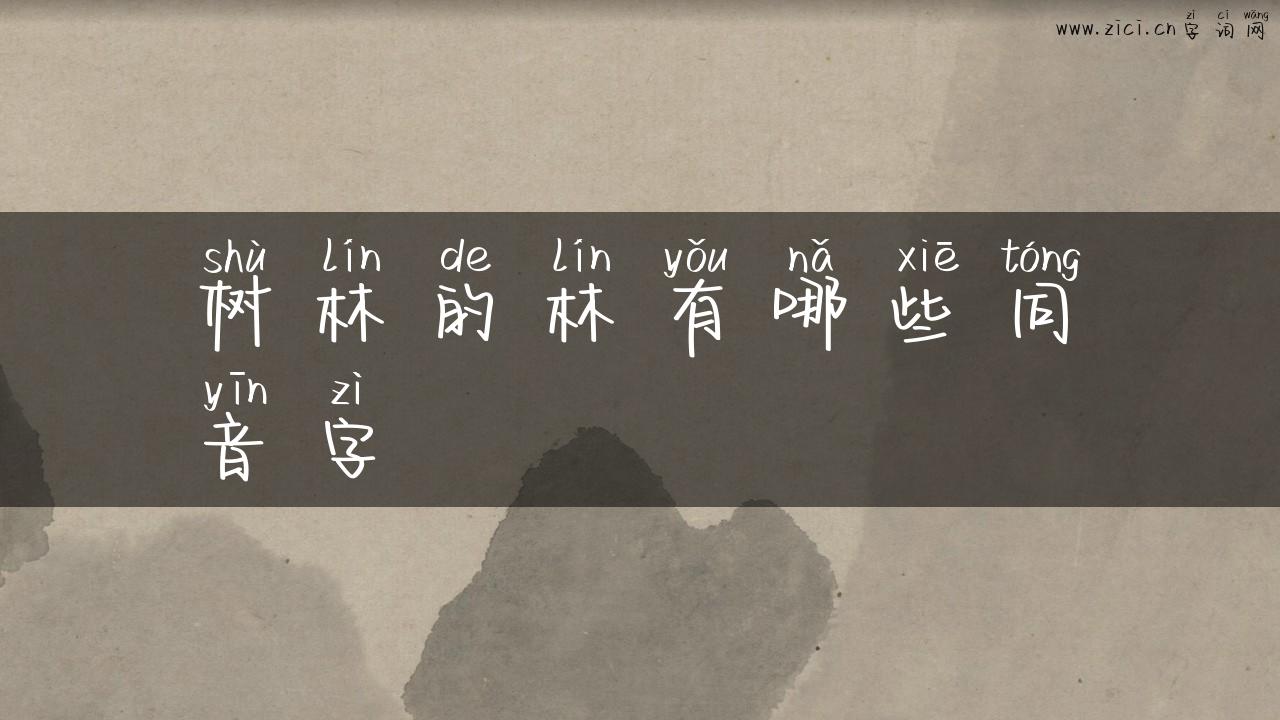 zì cí wǎng
www.zici.cn 字 词 网
shù lín de lín yǒu nǎ xiē tóng
树 林 的 林 有 哪 些 同
yīn zì
音 字